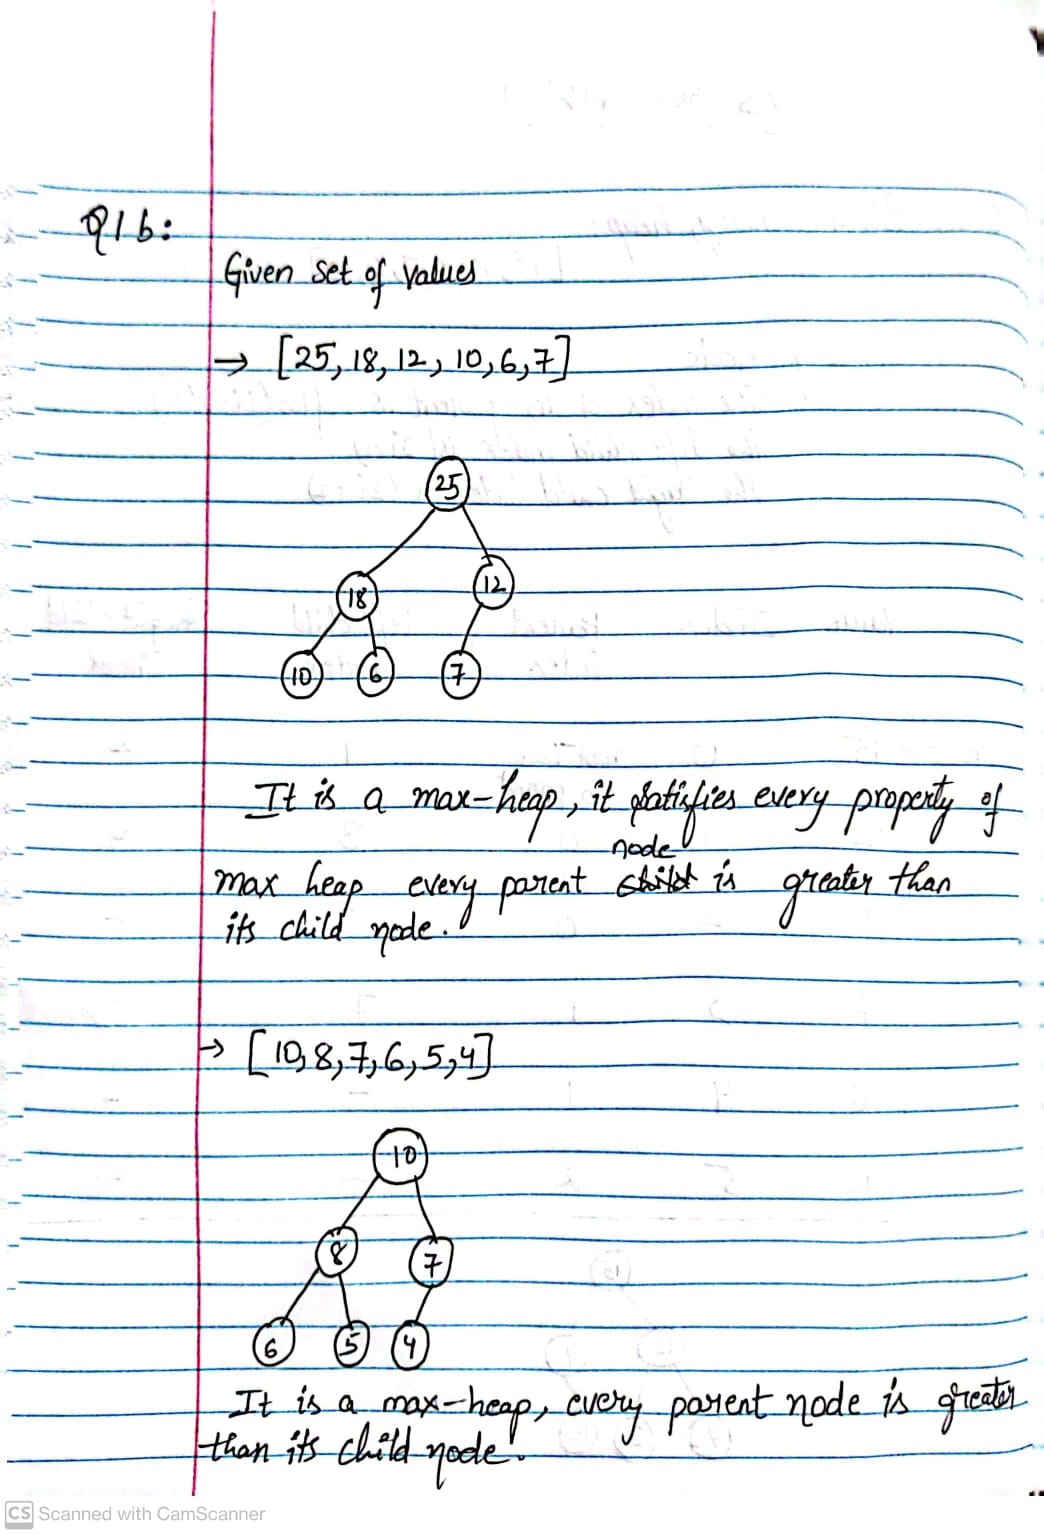 Q1b:
Given set of values
→ [25, 18, 12, 10, 6, 7]
25
18
12
10
6
7
It is a max-heap, it satisfies every property of
node
max heap every parent child is greater than
its child node.
→ [10, 8, 7, 6, 5, 4]
10
8
7
6
5
4
It is a max-heap, every parent node is greater
than its child node.
CS Scanned with CamScanner